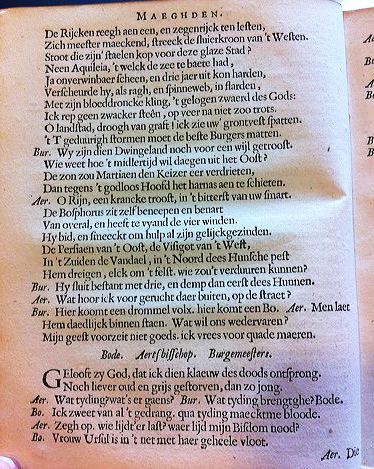 MAEGHDEN.
De Rijcken reegh aen een, en zegenrijck ten lesten,
Zich meester maeckend, streeck de sluierkroon van 't Westen.
Stoot die zijn' staelen kop voor deze glaze Stad?
Neen Aquileia, 't welck de zee te baere had,
Ja onverwinbaer scheen, en drie jaer uit kon harden,
Verscheurde hy, als ragh, en spinneweb, in flarden,
Met zijn blooddroncke kling, 't gelogen zwaerd des Gods:
Ick rep geen zwacker steên, op veer na niet zoo trots.
O landstad, droogh van graft! ick zie uw' grontvest spatten.
't Geduurigh stormen moet de beste Burgers matten.
Bur. Wy zijn dien Dwingeland noch voor een wijl getroost.
Wie weet hoe 't midlertijd wil daegen uit het Oost?
De zon zou Martiaen den Keizer eer verdrieten,
Dan tegens 't godloos Hoofd het harnas aen te schieten.
Aer. O Rijn, een krancke troost, in 't bitterst van uw smart.
De Bosphorus zit zelf beneepen en benart
Van overal, en heeft te vyand de vier winden.
Hy bid, en smeeckt om hulp al zijn gelijckgezinden.
De Persiaen van 't Oost, de Visigot van 't West,
In 't Zuiden de Vandael, in 't Noord dees Hunsche pest
Hem dreigen, elck om 't felst. wie zou't verduuren kunnen?
Bur. Hy sluit bestant met drie, en demp dan eerst dees Hunnen.
Aer. Wat hoor ick voor gerucht daer buiten, op de straet?
Bur. Hier koomt een drommel volx. hier komt een Bo. Aer. Men laet
Hem daedlijck binnen staen. Wat wil ons wedervaren?
Mijn geest voorzeit niet goeds. ick vrees voor quade maeren.
Bode. Aertsbisschop. Burgemeesters.
GElooft zy God, dat ick dien klaeuw des doods ontsprong.
Noch liever oud en grijs gestorven, dan zo jong.
Aer. Wat tyding? wat's er gaens? Bur. Wat tyding brengt ghe? Bode.
Bo. Ick zweet van al 't gedrang. qua tyding maeckt me bloode.
Aer. Zegh op. wie lijdt'er last? waer lijd mijn Bisdom nood?
Bo. Vrouw Ursul is in 't net met haer geheele vloot.
Aer. Die